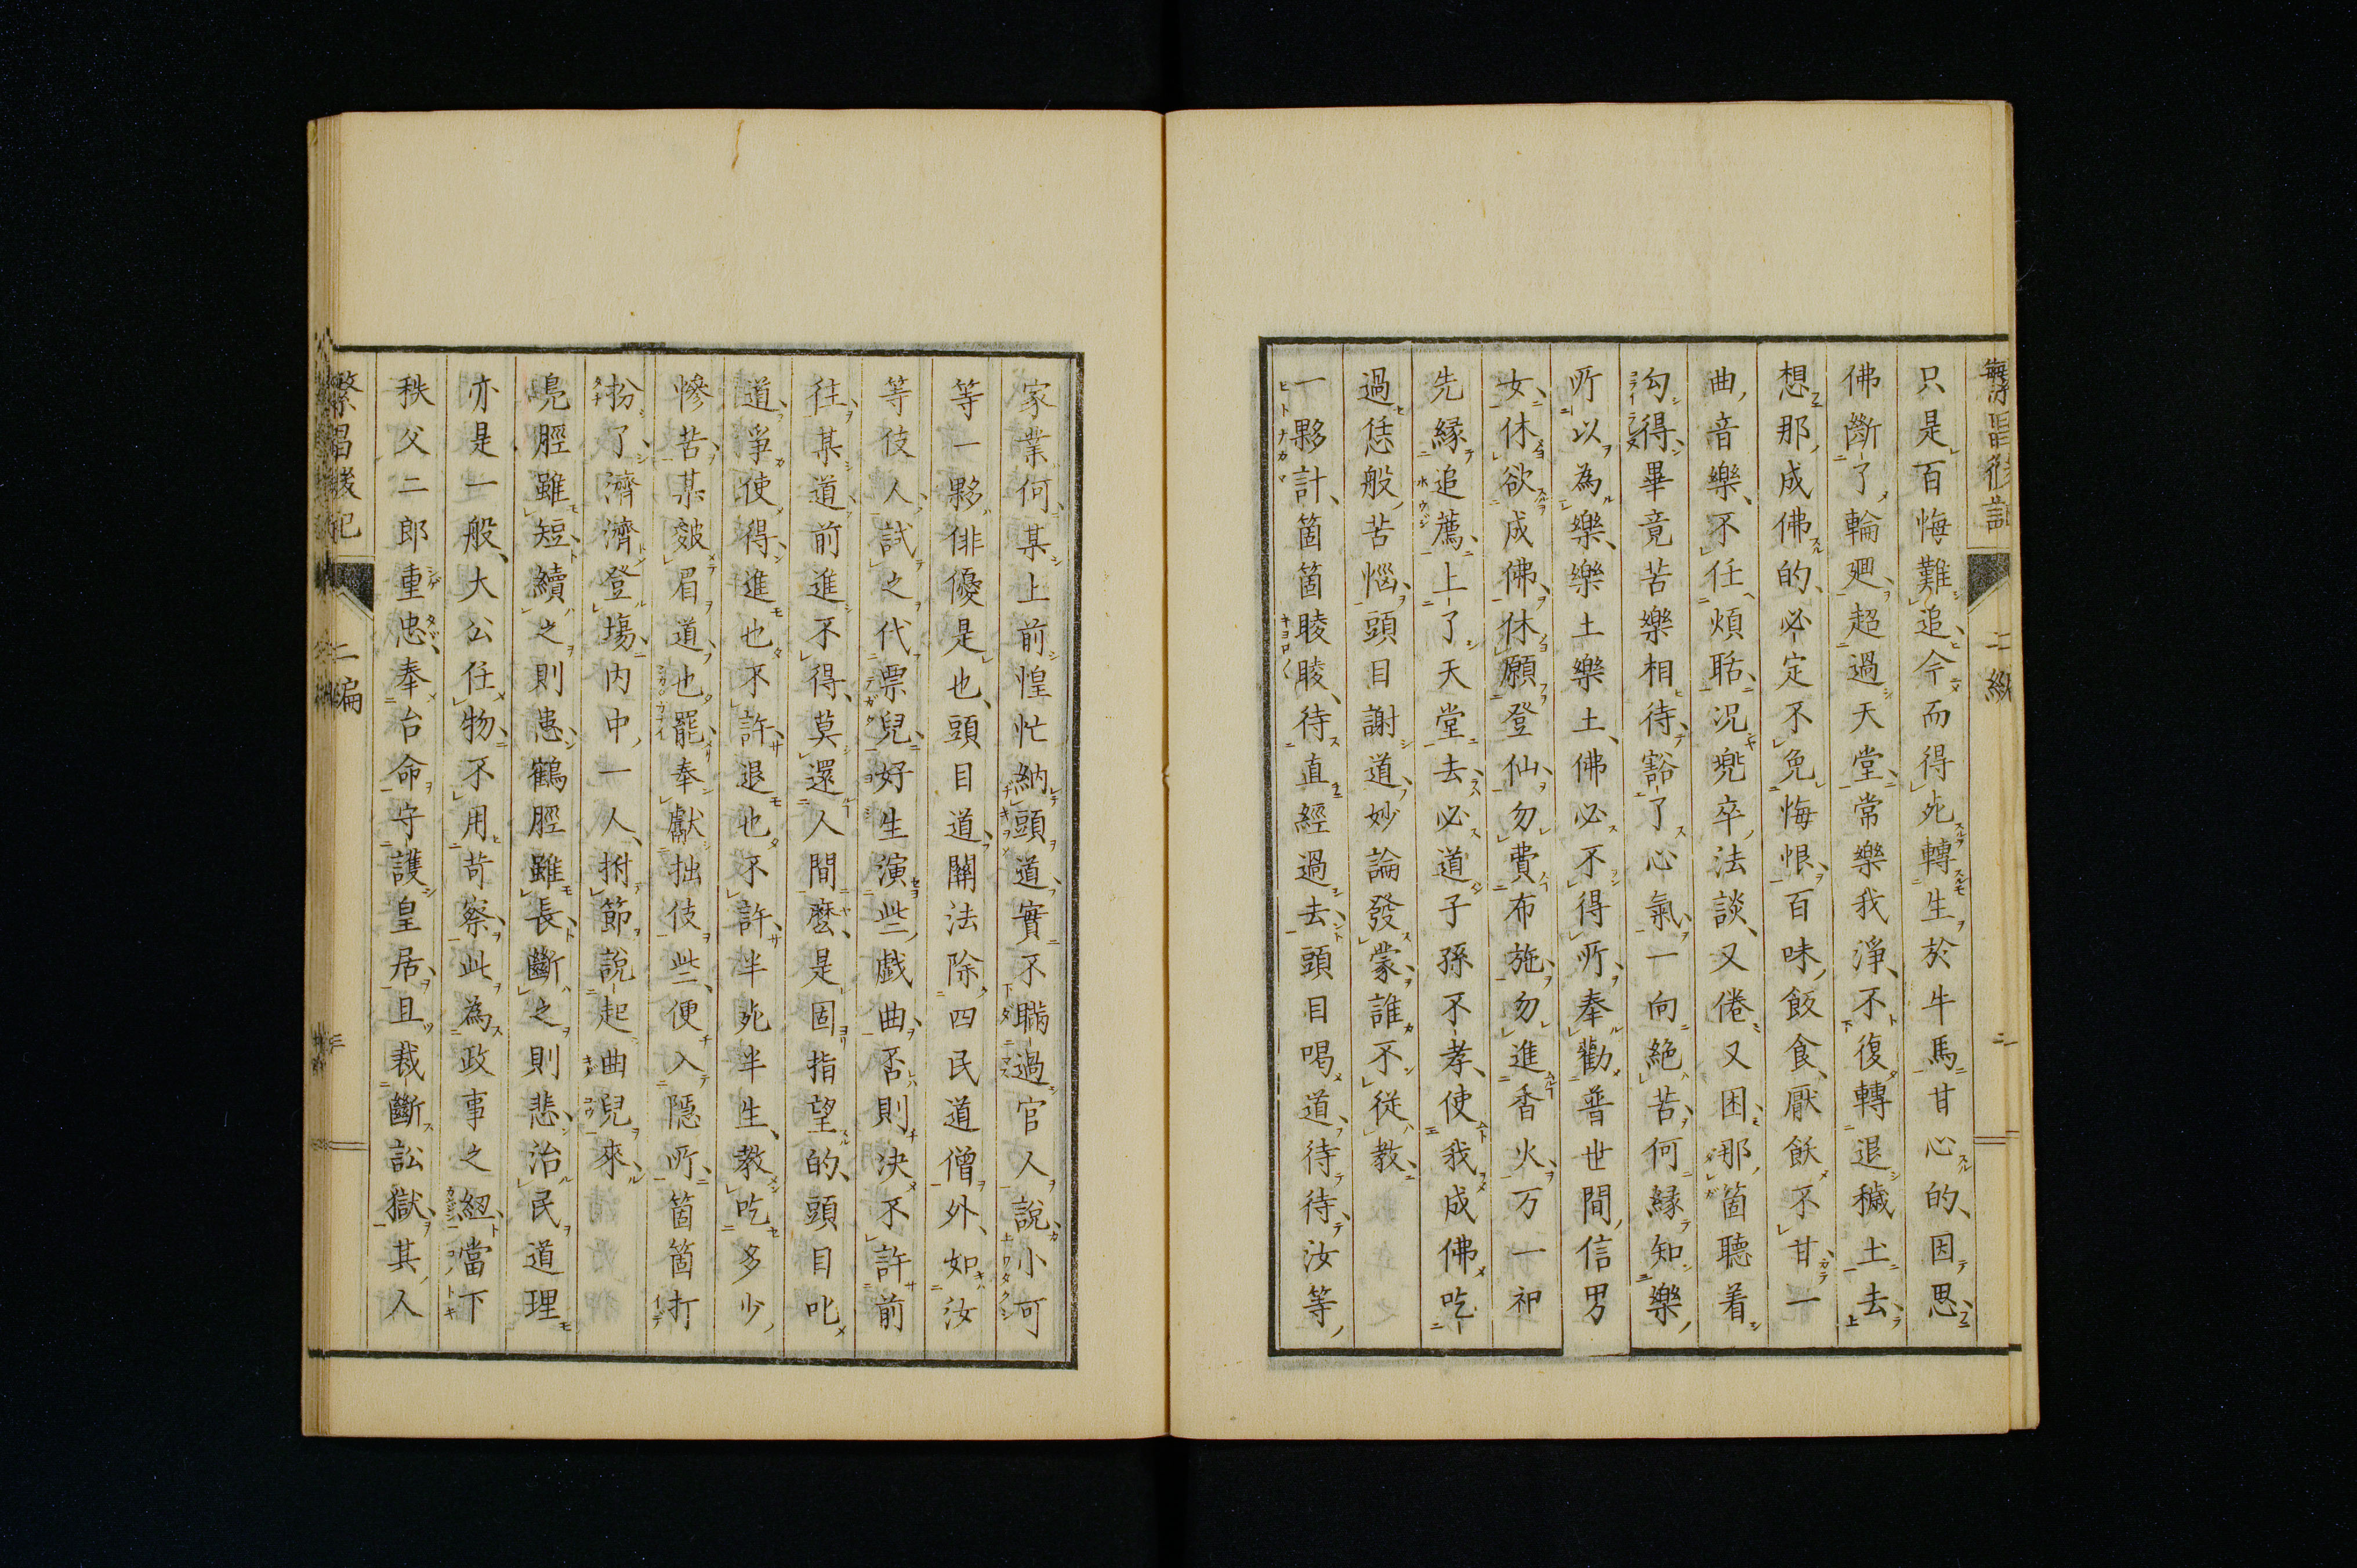 只是百悔難追今而得死轉生於牛馬甘心的因思
佛斷了輪廻超過天堂常樂我淨不復轉退穢土去
想那成佛的必定不免悔恨百味飯食厭飫不甘一
曲音樂不任煩聒況兜卒法談又倦又困那箇聽着
勾得畢竟苦樂相待豁了心氣一向絶苦何縁知樂
所以為樂樂土樂土佛必不得所奉勸普世間信男
女休欲成佛休願登仙勿費布施勿進香火万一祀
先縁追薦上了天堂去必道子孫不孝使我成佛吃
過恁般苦惱頭目謝道妙論發蒙誰不從教
一夥計箇箇睖睖待直經過去頭目喝道待待汝等
家業何某上前惶忙納頭道實不瞞過官人說小可
等一夥俳優是也頭目道關法除四民道僧外如汝
等伎人試之代票兒好生演些戲曲否則決不許前
往某道前進不得莫還人間麼是固指望的頭目叱
道爭使得進也不許退也不許半死半生教吃多少
慘苦某皴眉道也罷奉獻拙伎些便入隱所箇箇打
扮了濟濟登場内中一人拊節說起曲兒來
鳧脛雖短續之則患鶴脛雖長斷之則悲治民道理
亦是一般大公任物不用苛察此為政事之 當下
秩父二郎重忠奉台命守護皇居且裁斷訟獄其人
繁昌後記 二編